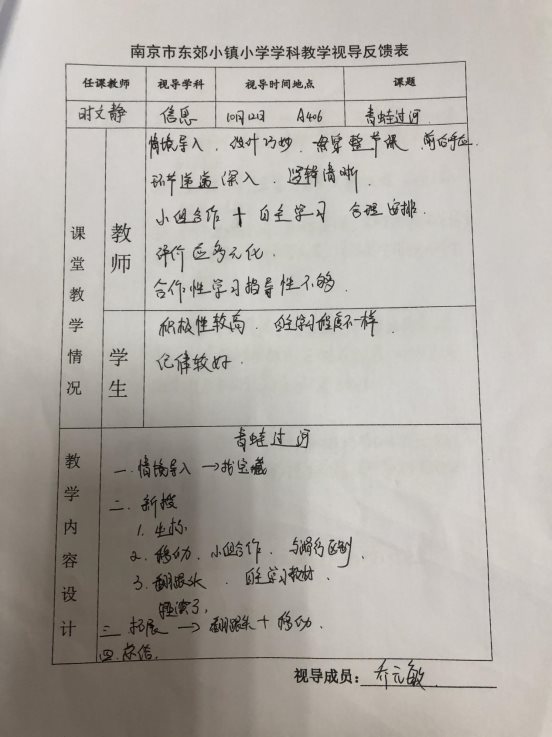 南京市东郊小镇小学学科教学视导反馈表
任课教师 视导学科 视导时间地点 课题
时文静 信息 10月12日 A406 青蛙过河
课堂教学情况
教师
情境导入、设计巧妙、贯穿整节课 前后呼应
环节逐步深入、逻辑清晰
小组合作 + 自主学习 合理安排.
评价应多元化.
合作性学习指导性不够.
学生
积极性较高. 自主学习程度不一样.
纪律较好.
教学内容设计
青蛙过河
一. 情境导入 →找宝藏
二. 新授
1. 坐标
2. 移动. 小组合作. 与滑行区别.
3. 翻跟头. 自主学习教材.
三. 拓展 → 翻跟头 + 移动.
四. 总结.
视导成员: 乔元敏